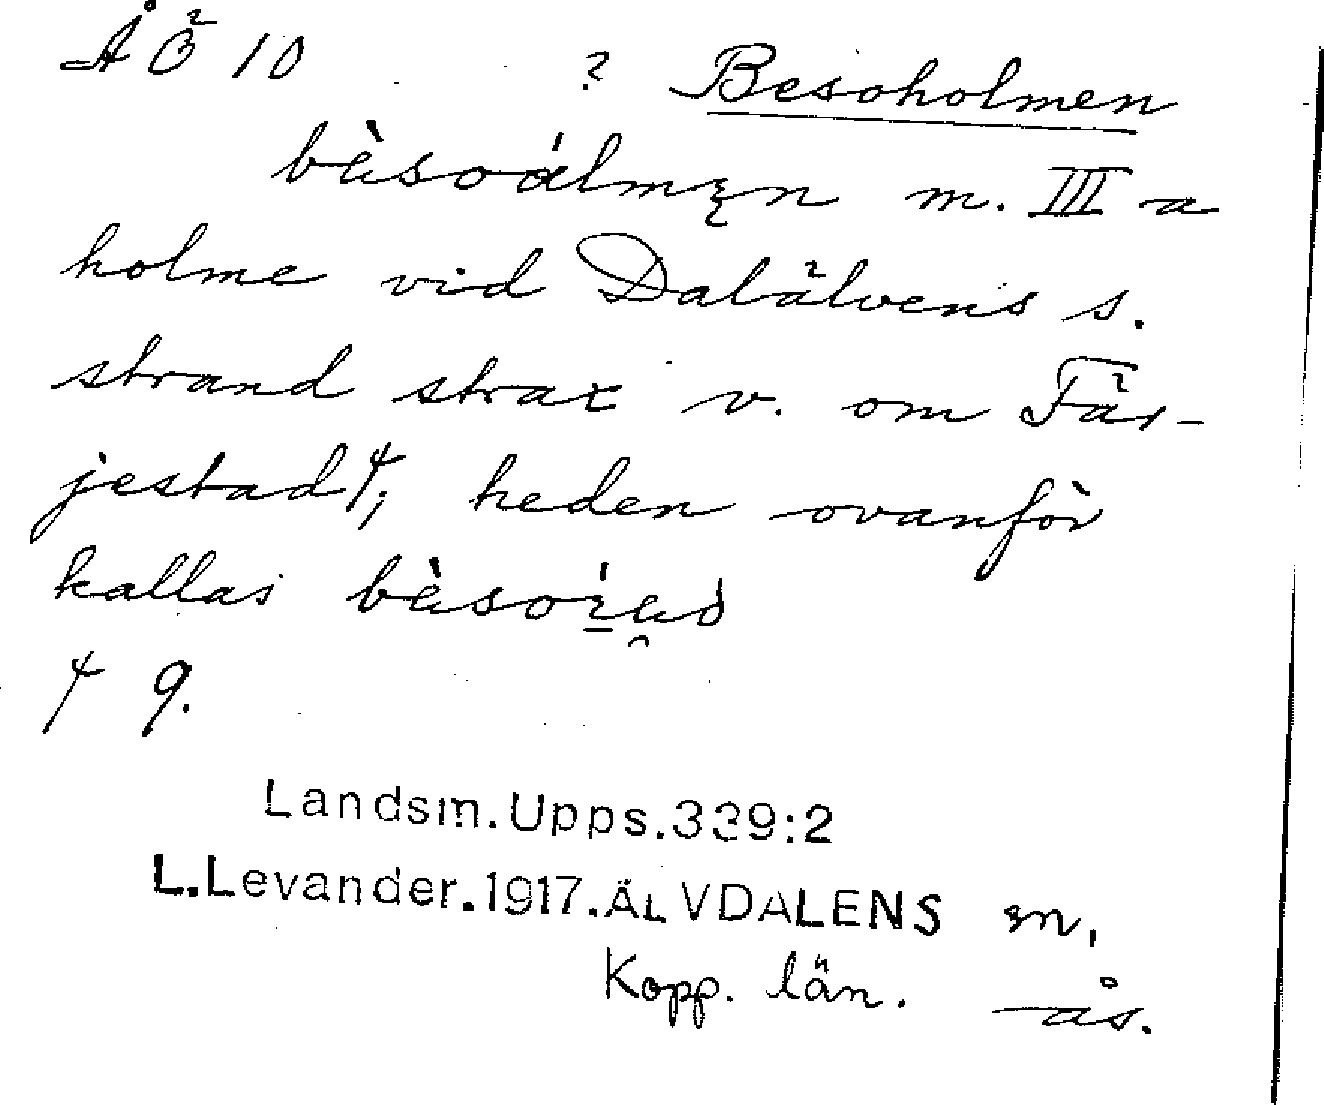 ÅÖ 10 ? Besoholmen
bèsoálmęn m. III a
holme vid Dalälvens s.
strand strax v. om Fär-
jestad⁺; heden ovanför
kallas
+ 9.
Landsm.Upps.339:2
L.Levander.1917.ÄLVDALENS m.
Kopp. län. ås.